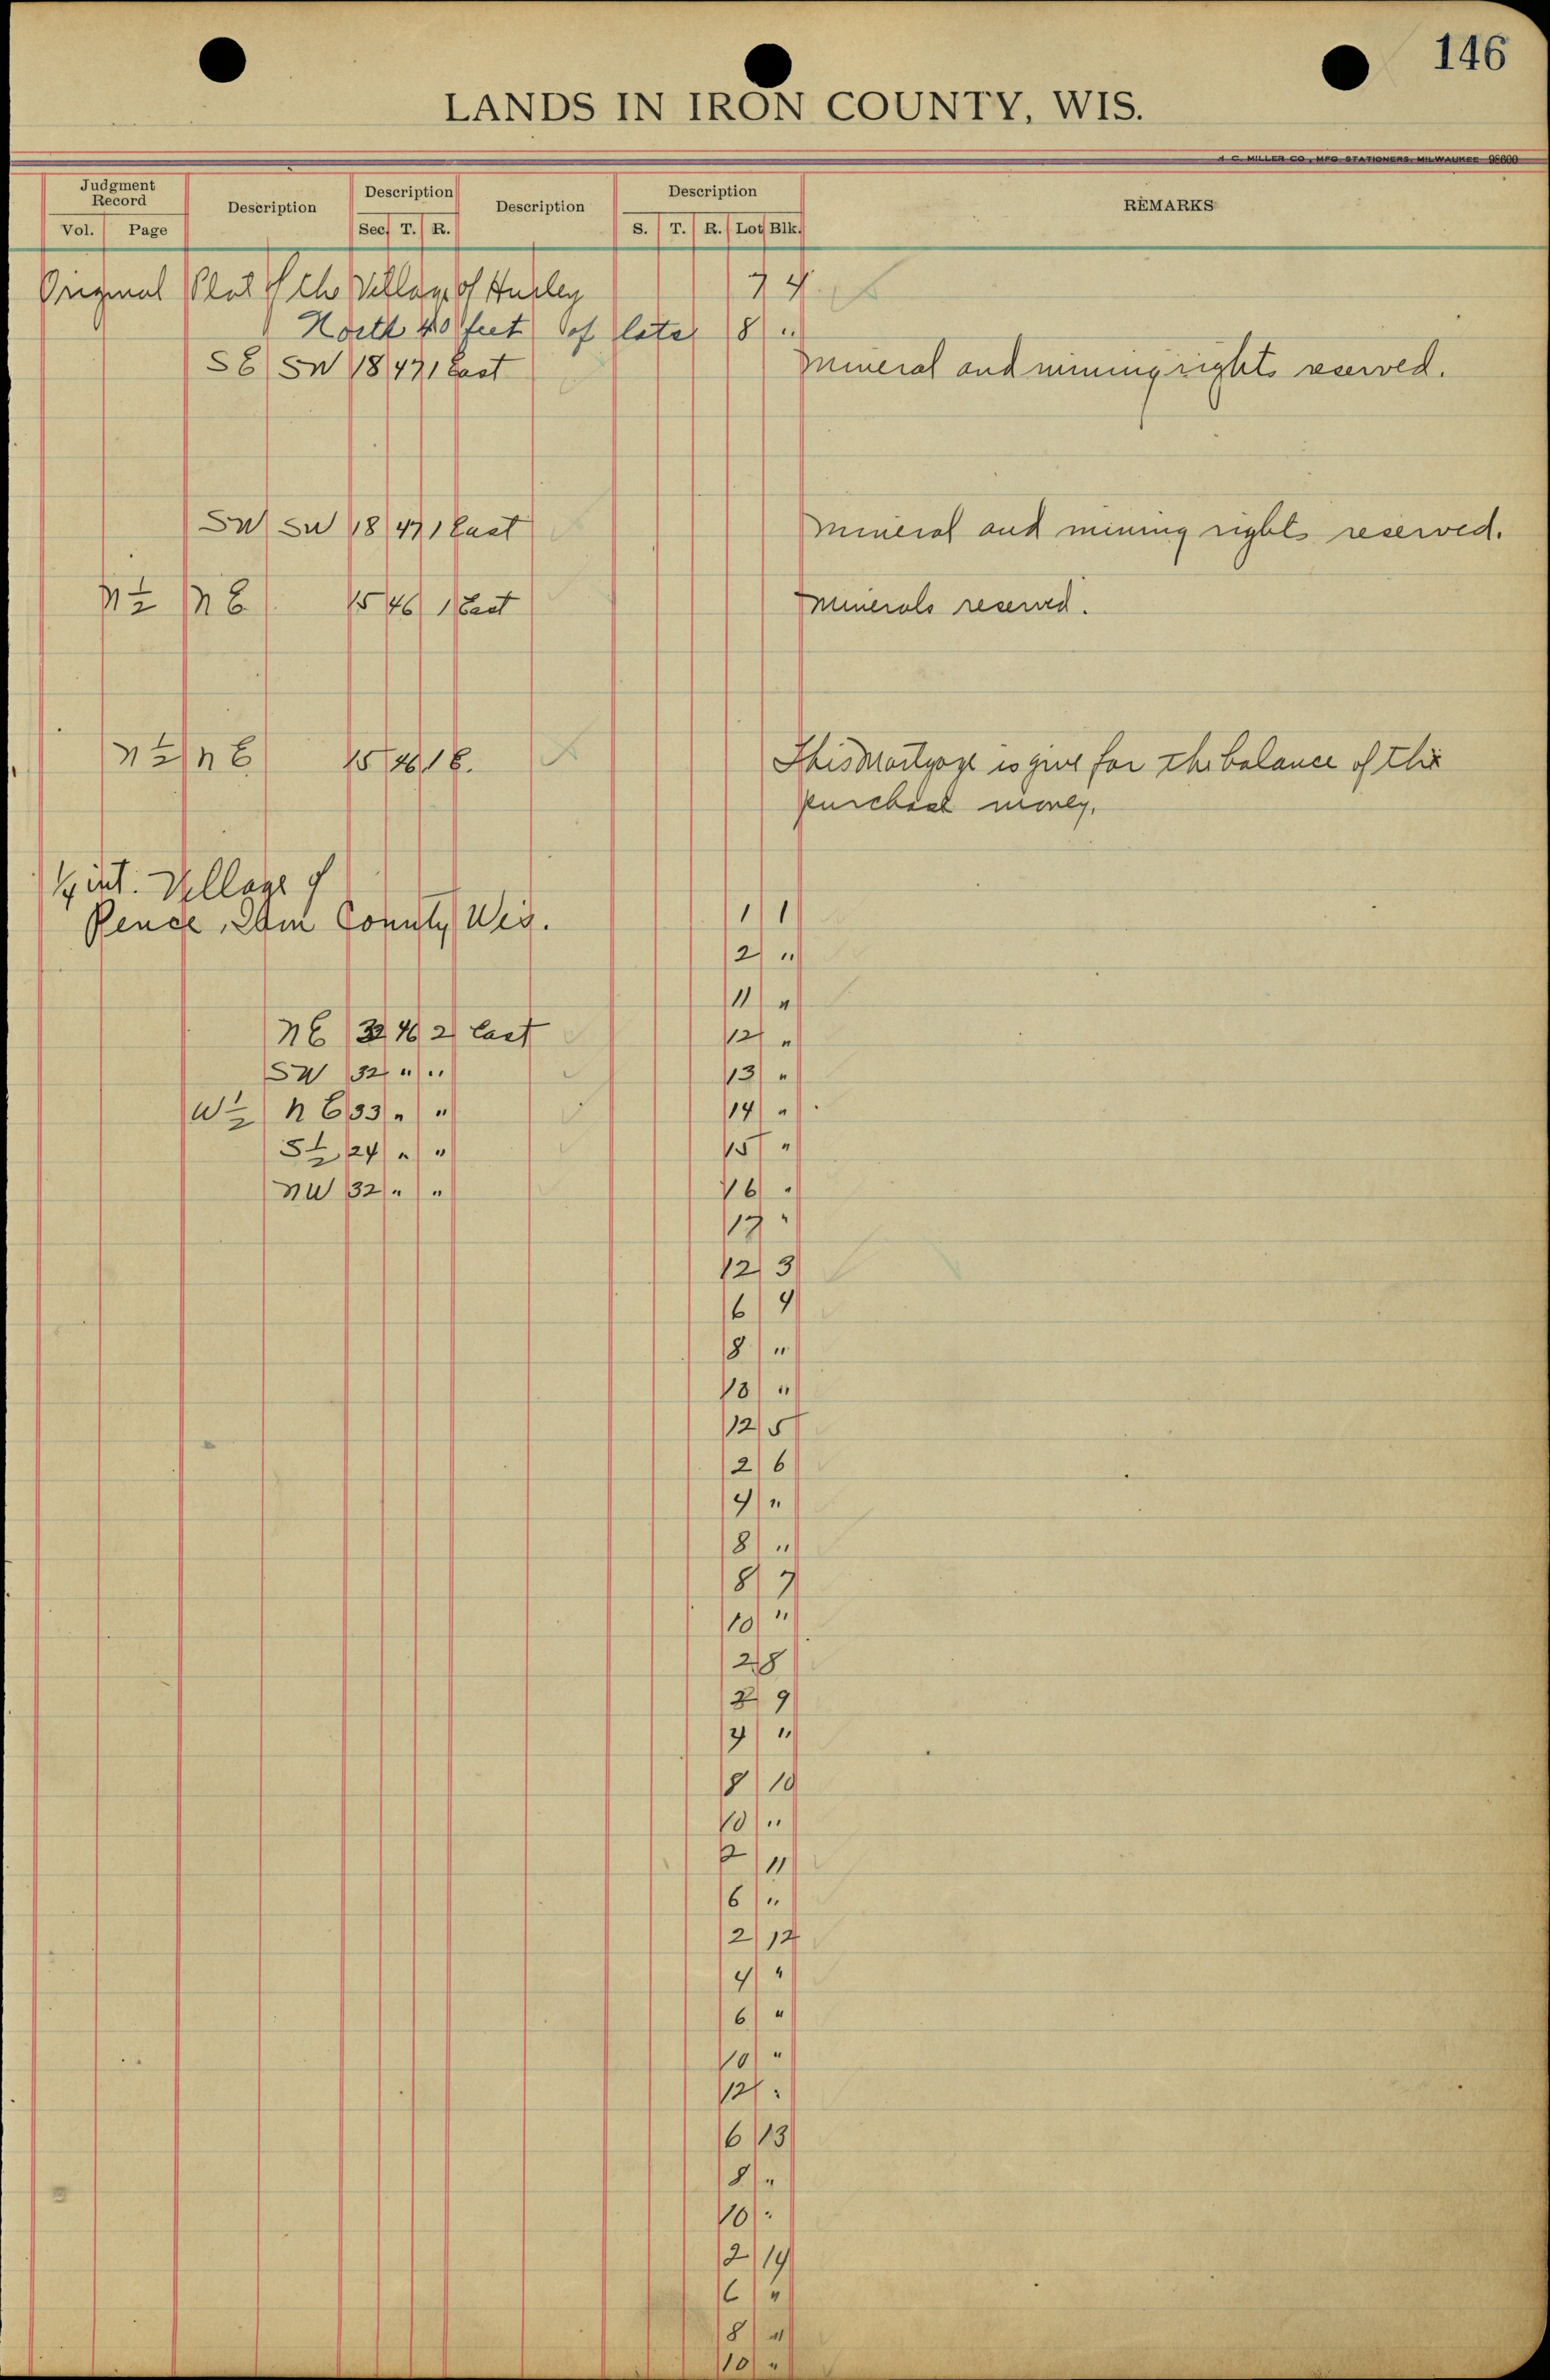 146
LANDS IN IRON COUNTY, WIS.
H. C. MILLER CO., MFG. STATIONERS, MILWAUKEE 98600
Judgment Record Description Description Description Description REMARKS
Vol. Page Sec. T. R. S. T. R. Lot Blk.
Original Plat of the Village of Hurley 7 4
North 40 feet of lots 8 "
SE SW 18 47 1 East Mineral and mining rights reserved.
SW SW 18 47 1 East Mineral and mining rights reserved.
N ½ NE 15 46 1 East Minerals reserved.
N ½ NE 15 46 1 E. This Mortgage is give for the balance of the
purchase money.
int. Village of
Pence, Iron County Wis. 1 1
2 "
11 "
NE 32 46 2 East 12 "
SW 32 " " 13 "
W ½ NE 33 " " 14 "
S ½ 24 " " 15 "
NW 32 " " 16 "
17 "
12 3
6 4
8 "
10 "
12 5
2 6
4 "
8 "
8 7
10 "
2 8
2 9
4 "
8 10
10 "
2 11
6 "
2 12
4 "
6 "
10 "
12 "
6 13
8 "
10 "
2 14
6 "
8 "
10 "